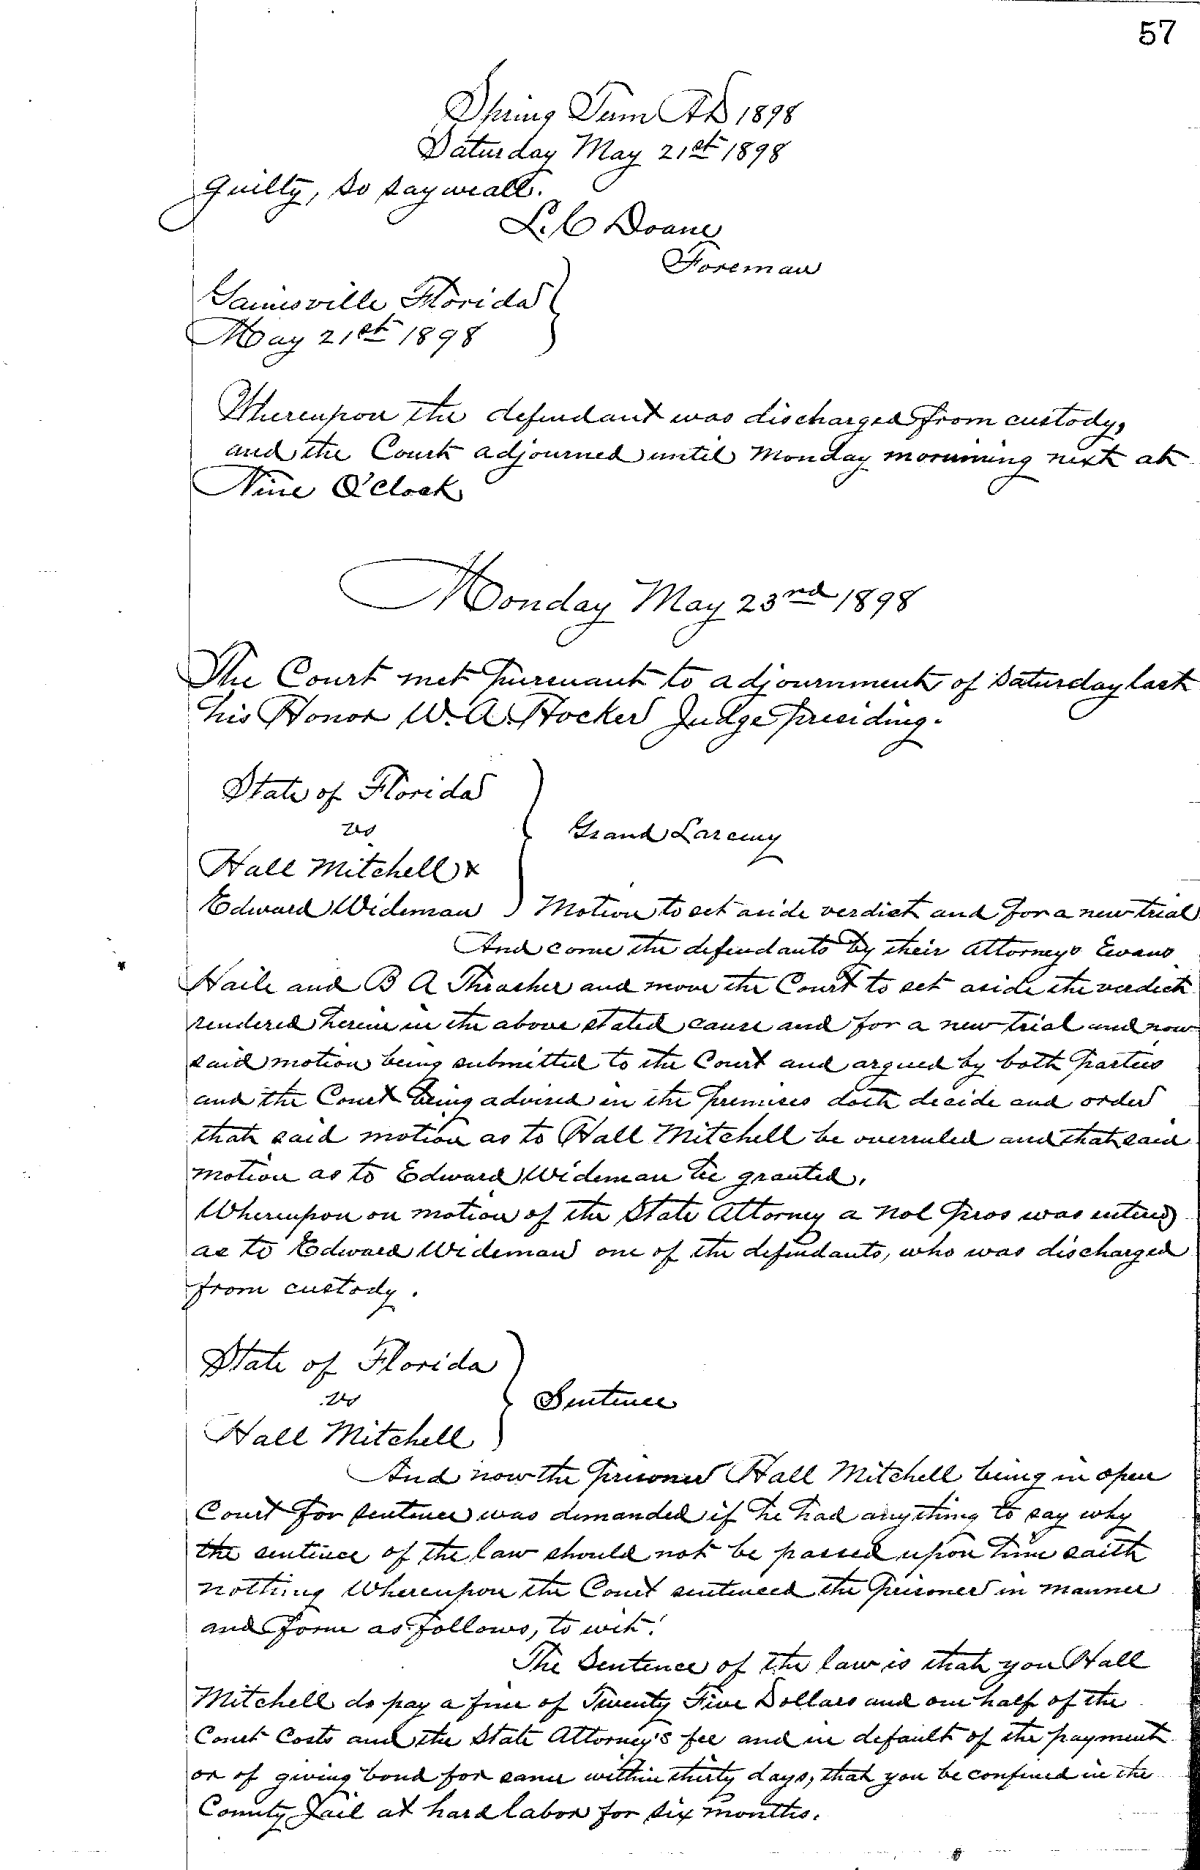 57
Spring Term AD 1898
Saturday May 21st 1898
guilty, so say we all.
L. C Doane
Foreman
Gainesville Florida
May 21st 1898
Whereupon the defendant was discharged from custody,
and the Court adjourned until Monday mornning next at
Nine O'Clock
Monday May 23rd 1898
The Court met pursuant to adjournment of Saturday last
his Honor W. A. Hocker Judge presiding.
State of Florida
vs
Grand Larceny
Hall Mitchell &
Edward Wideman Motion to set aside verdict and for a new trial
And come the defendants by their Attorneys Evans
Haile and B A Thrasher and move the Court to set aside the verdict
rendered herein in the above stated cause and for a new trial and now
said motion being submitted to the Court and argued by both parties
and the Court being advised in the premises doth decide and order
that said motion as to Hall Mitchell be overruled and that said
motion as to Edward Wideman be granted.
Whereupon on motion of the State Attorney a nol pros was entered
as to Edward Wideman one of the defendants, who was discharged
from custody.
State of Florida
vs
Sentence
Hall Mitchell
And now the prisoner Hall Mitchell being in open
Court for sentence was demanded if he had anything to say why
the sentence of the law should not be passed upon him saith
nothing Whereupon the Court sentenced the prisoner in manner
and form as follows, to wit:
The Sentence of the law is that you Hall
Mitchell do pay a fine of Twenty Five Dollars and one half of the
Court Costs and the State Attorney's fee and in default of the payment
or of giving bond for same within thirty days, that you be confined in the
County Jail at hard labor for six months.